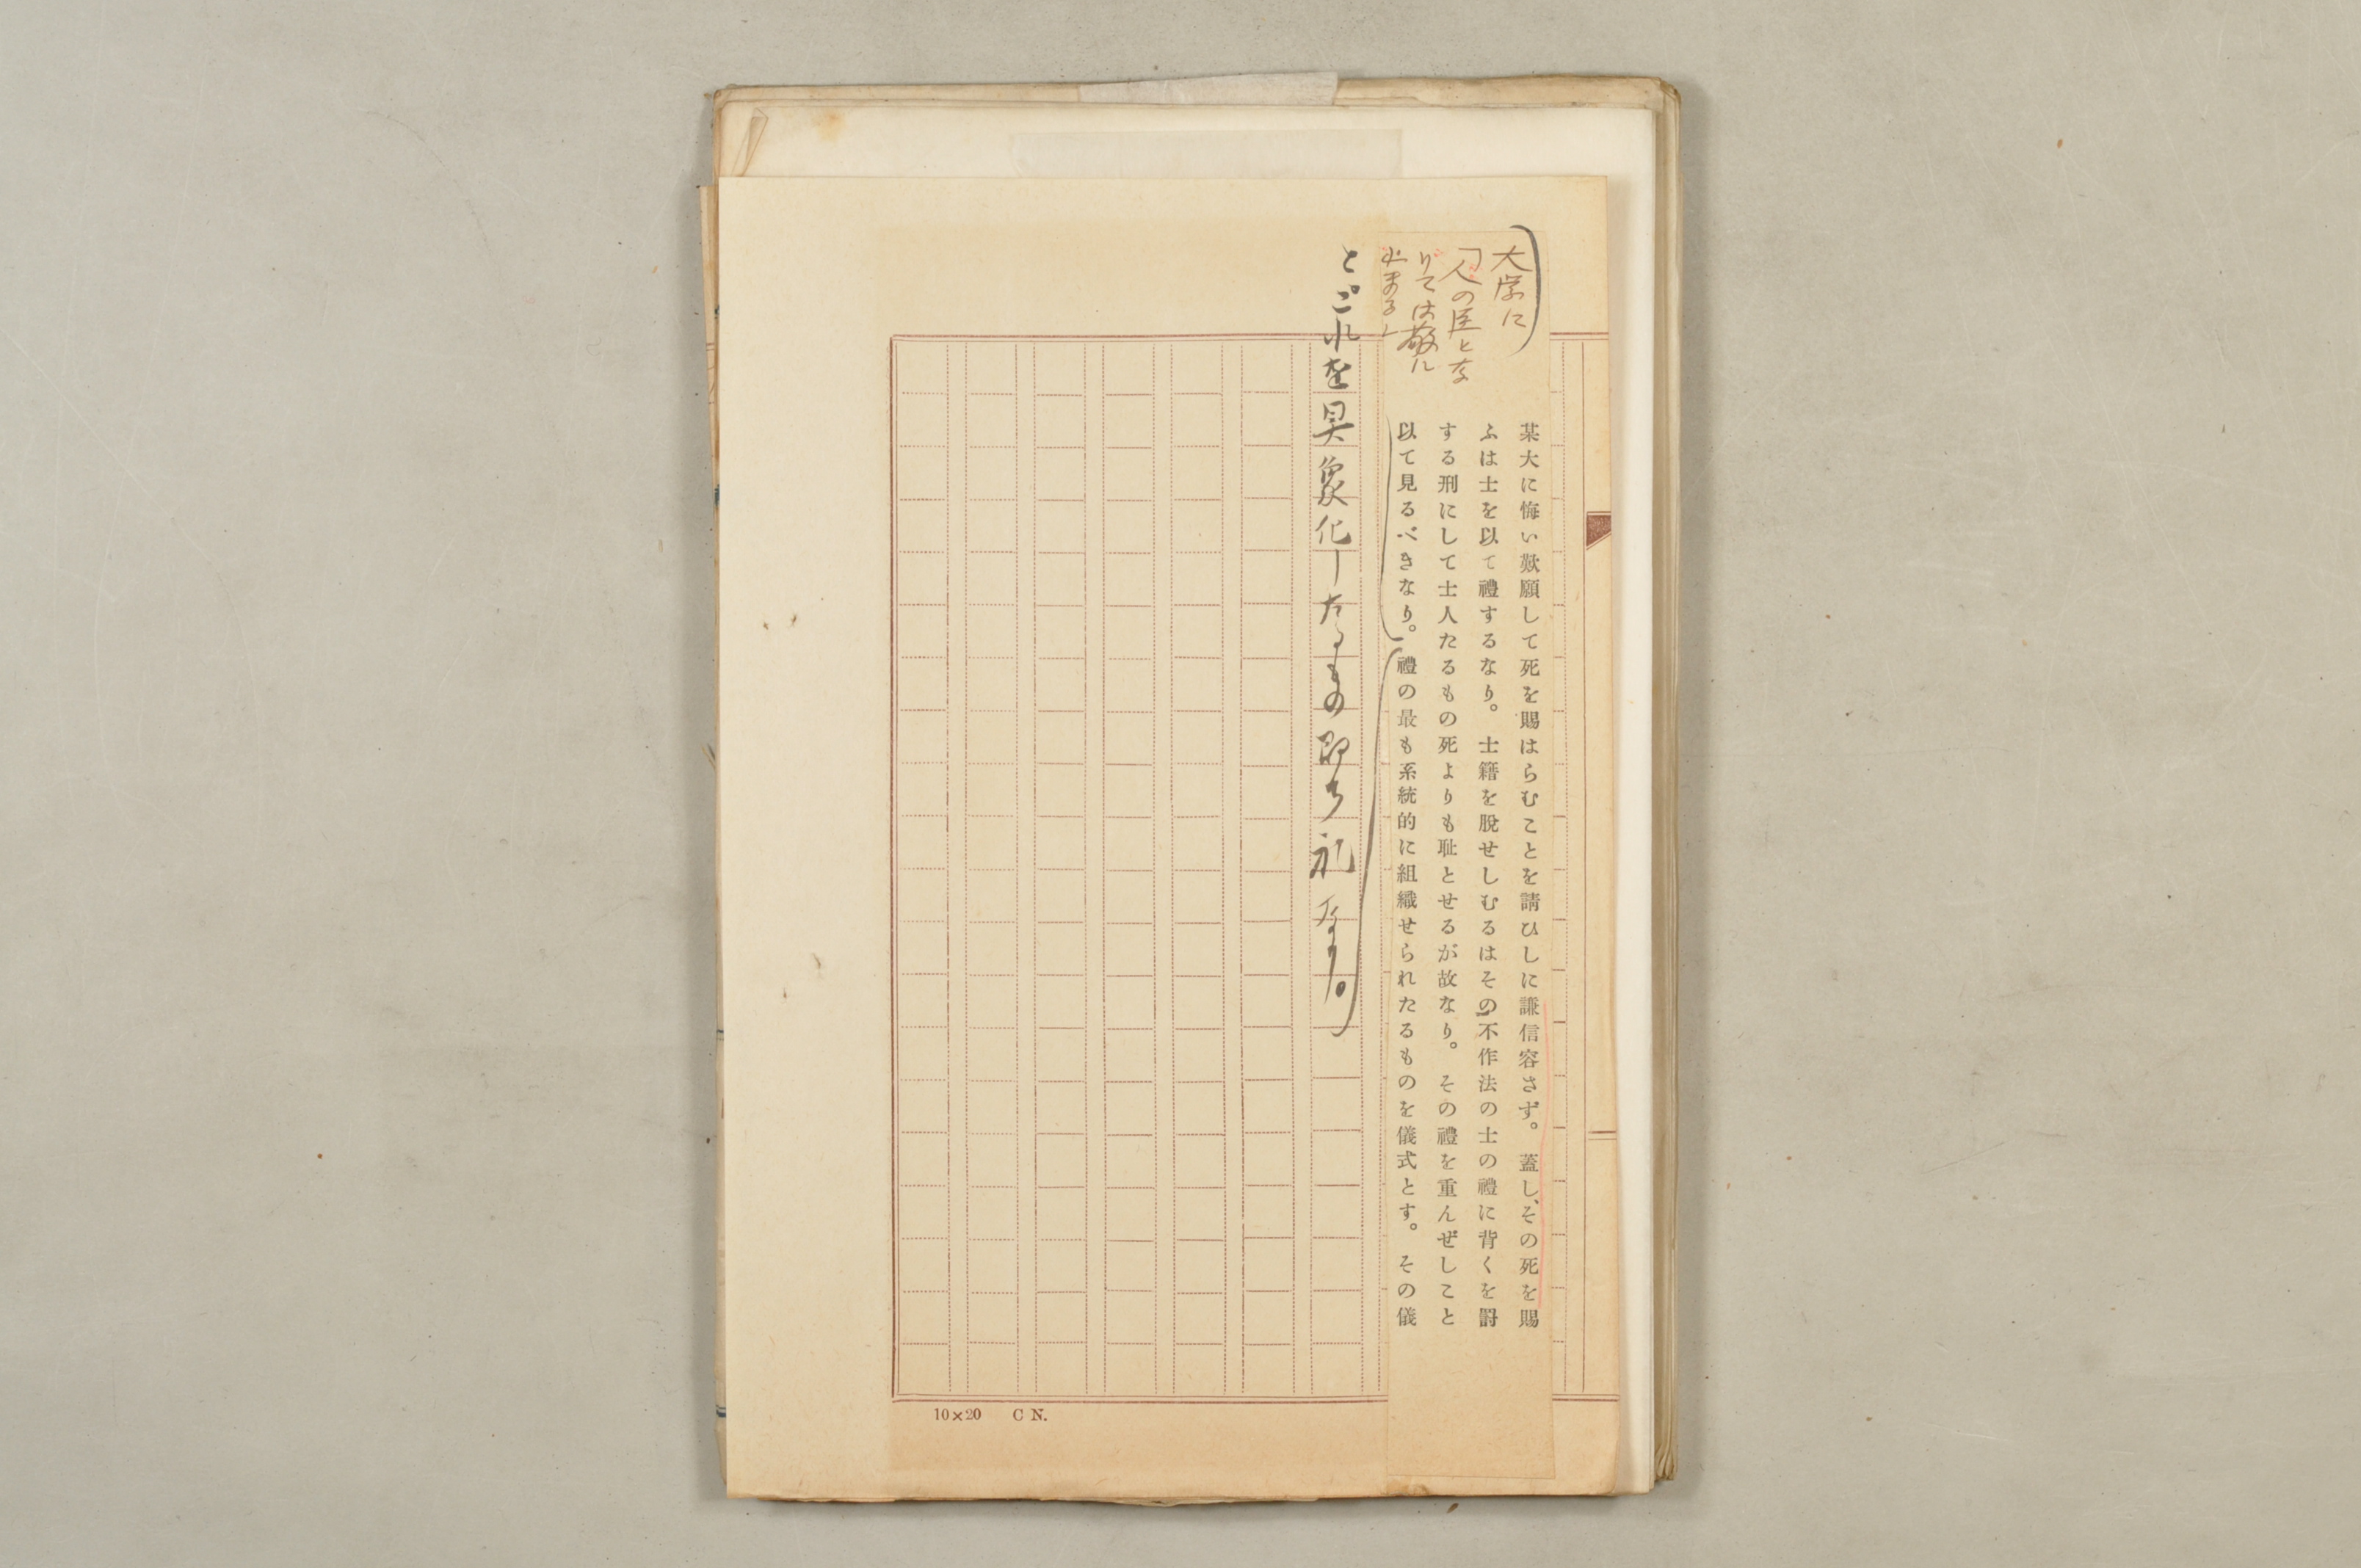 大学に
「人の臣とな
りては敬に
止まる」
某大に悔い歎願して死を賜はらむことを請ひしに謙信容さず。蓋し、その死を賜
ふは士を以て禮するなり。士籍を脫せしむるはその不作法の士の禮に背くを罸
する刑にして士人たるもの死よりも耻とせるが故なり。その禮を重んぜしこと
以て見るべきなり。禮の最も系統的に組織せられたるものを儀式とす。その儀
と。これを具象化したるもの即ち礼なり。
10×20 C N.